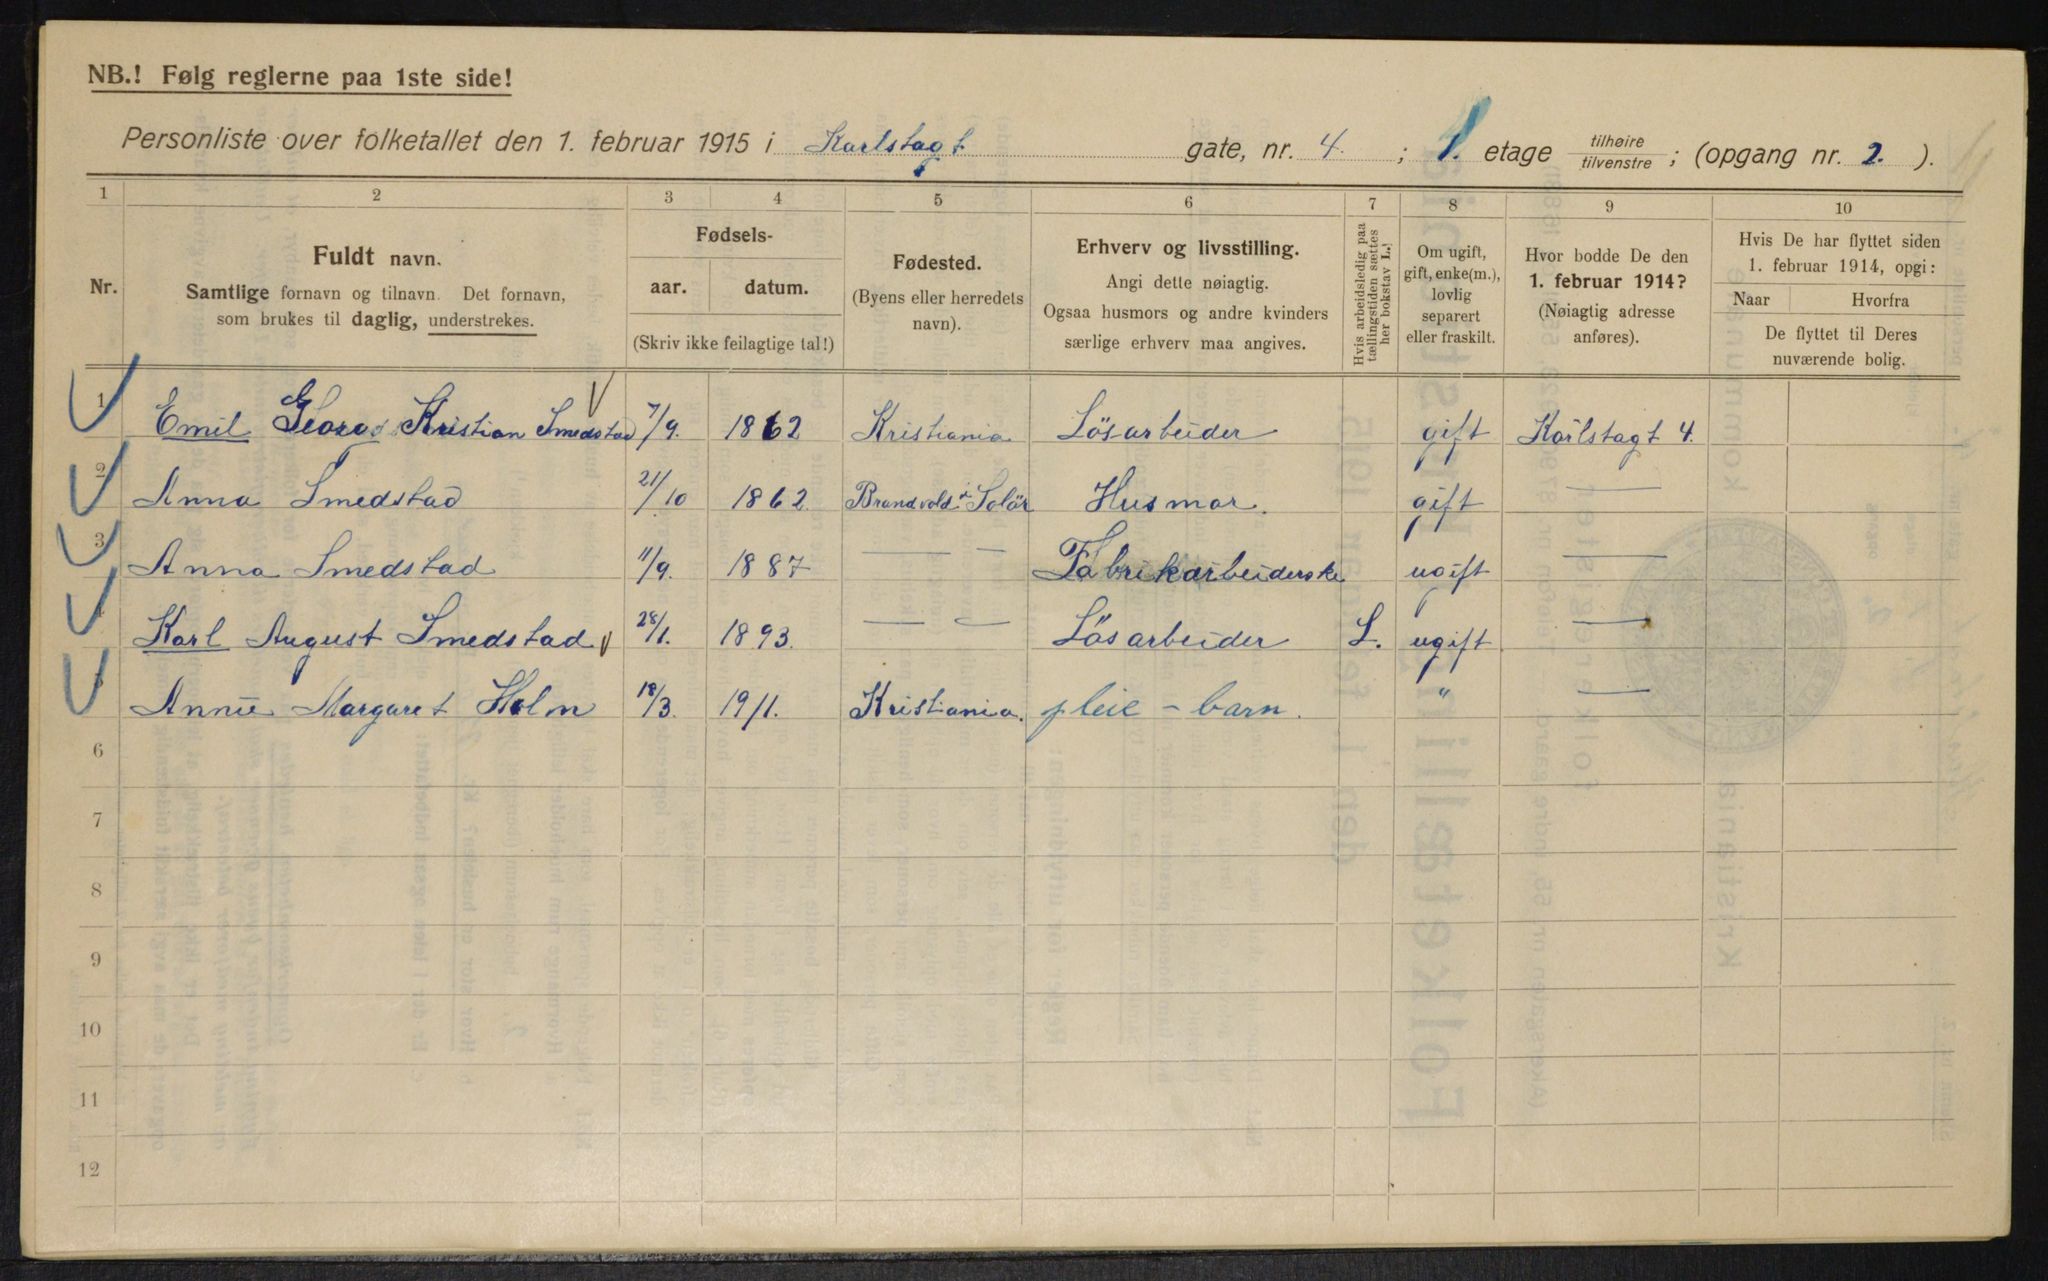 NB.! Følg reglerne paa 1ste side!
Personliste over folketallet den 1. februar 1915 i Karlstagt gate, nr. 4. ; 1. etage tilhøire tilvenstre ; (opgang nr. 2. ).
1 2 3 4 5 6 7 8 9 10
Nr.
Fuldt navn.
Samtlige fornavn og tilnavn. Det fornavn,
som brukes til daglig, understrekes.
Fødsels-
aar. datum.
(Skriv ikke feilagtige tal!)
Fødested.
(Byens eller herredets
navn).
Erhverv og livsstilling.
Angi dette nøiagtig.
Ogsaa husmors og andre kvinders
særlige erhverv maa angives.
Hvis arbeidsledig paa
tællingstiden sættes
her bokstav L.!
Om ugift,
gift, enke(m.),
lovlig
separert
eller fraskilt.
Hvor bodde De den
1. februar 1914?
(Nøiagtig adresse
anføres).
Hvis De har flyttet siden
1. februar 1914, opgi:
Naar Hvorfra
De flyttet til Deres
nuværende bolig.
1 Emil Georg Kristian Smedstad 7/9. 1862 Kristiania Lösarbeider gift Karlstagt 4.
2 Anna Smedstad 21/10 1862 Brandvold i Solör Husmor. gift —
3 Anna Smedstad 11/9. 1887 — — Fabrikarbeiderske ugift —
4 Karl August Smedstad 28/1. 1893. — — Lösarbeider L. ugift —
5 Annie Margaret Holm 18/3. 1911. Kristiania. pleie - barn. " —
6
7
8
9
10
11
12